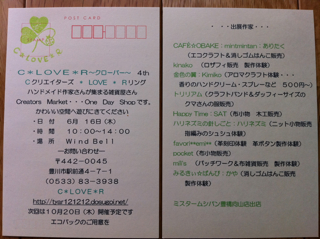 POST CARD
C*LOVE*R
C*LOVE*R～クローバー～ 4th
Cクリエイターズ * LOVE * Rリング
ハンドメイド作家さんが集まる雑貨屋さん
Creators Market・・・One Day Shopです。
かわいい空間へ遊びにきてください
・日 付 6月16日(木)
・時 間 10:00～14:00
・場 所 Wind Bell
～お問い合わせ～
〒442-0045
豊川市駅前通4-7-1
(0533)83-3938
C*LOVE*R
http://bar121212.dosugoi.net/
次回は10月20日(木)開催予定です
エコバックのご用意を
・・出展作家・・・
CAFE☆OBAKE:mintmintan:ありたく
(エコクラフト&消しゴムはんこ販売)
kinako (ロザフィ販売 製作体験)
金色の翼:Kimiko (アロマクラフト体験・・・
香りのハンドクリーム・スプレーなど 500円～)
トリリアム (クラフトバンド&ダッフィーサイズの
クマさんの服販売)
Happy Time:SAT (布小物 木工販売)
ハリネズミの針しごと:ハリネズミ (ニット小物販売
指編みのシュシュ体験)
(革刻印体験 羊ボタン製作体験)
pocket (布小物販売)
mili's (パッチワーク&布雑貨販売 製作体験)
(消しゴムはんこ販売
製作体験)
ミスタームシパン豊橋向山店出店